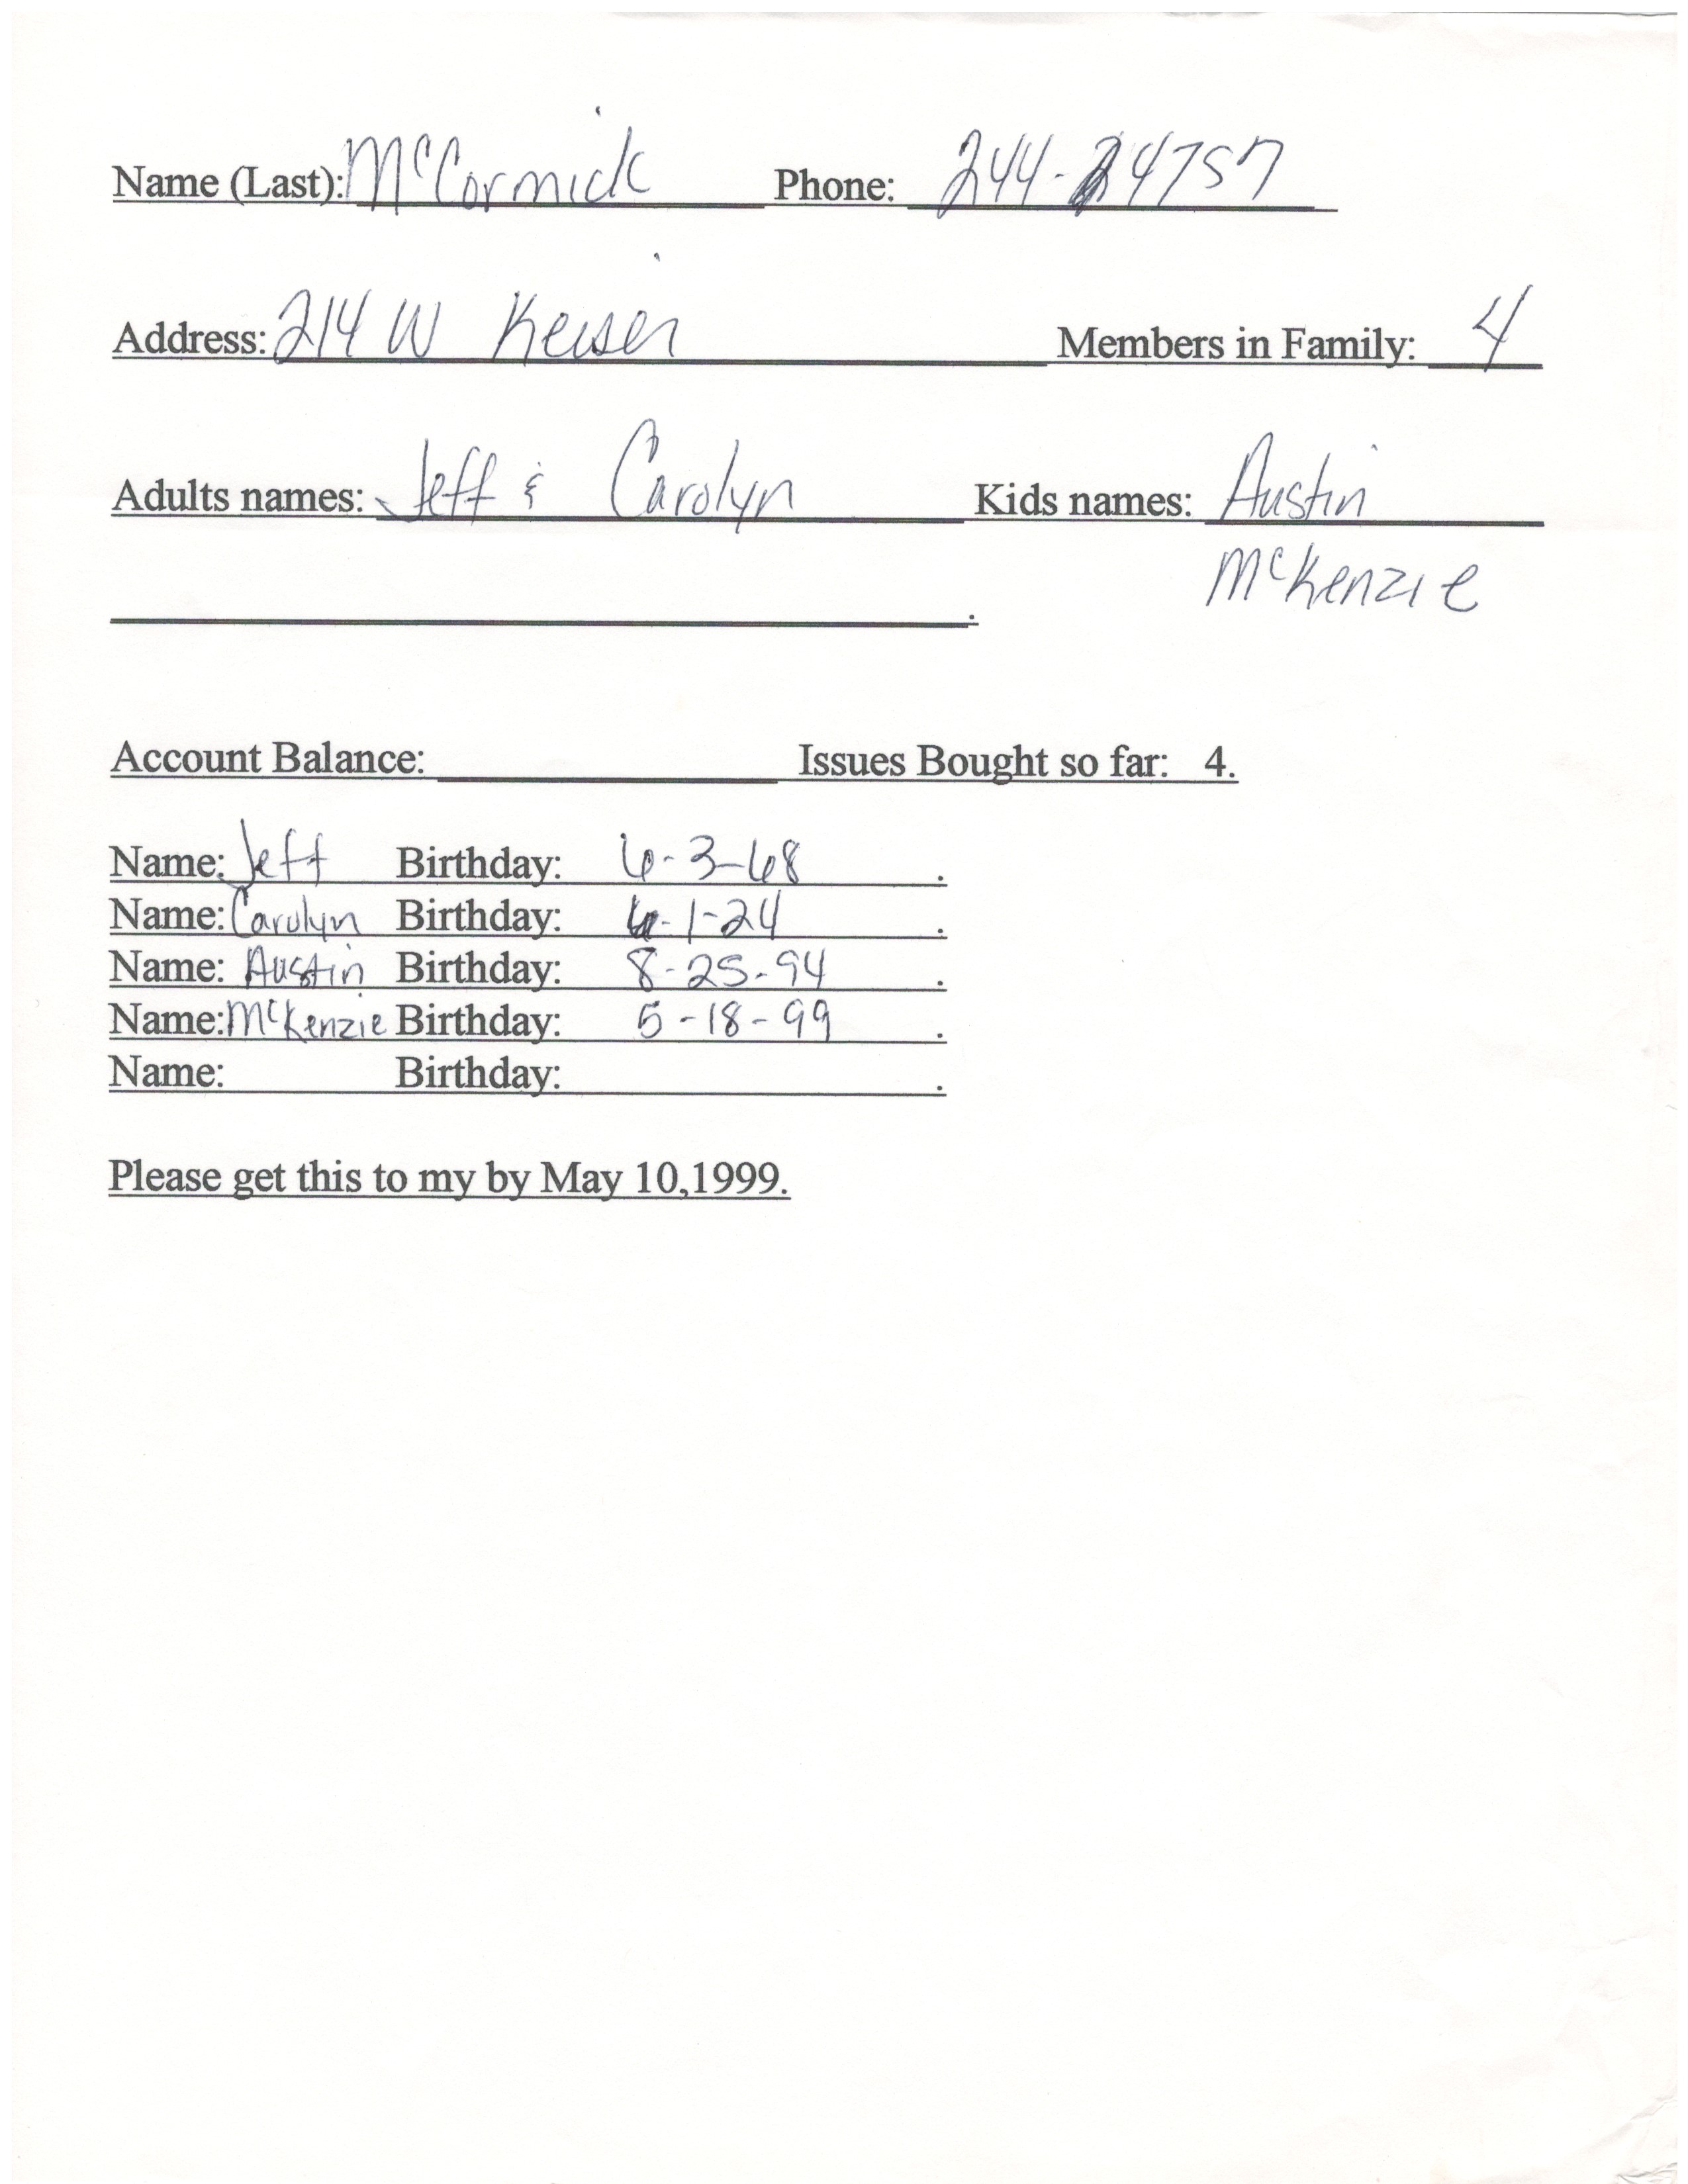 Name (Last): McCormick Phone: 244-4757
Address: 214 W Keiser Members in Family: 4
Adults names: Jeff & Carolyn Kids names: Austin
McKenzie
Account Balance: Issues Bought so far: 4.
Name: Jeff Birthday: 6-3-68.
Name: Carolyn Birthday: 1-24.
Name: Austin Birthday: 8-25-94.
Name: McKenzie Birthday: 5-18-99.
Name: Birthday: .
Please get this to my by May 10,1999.